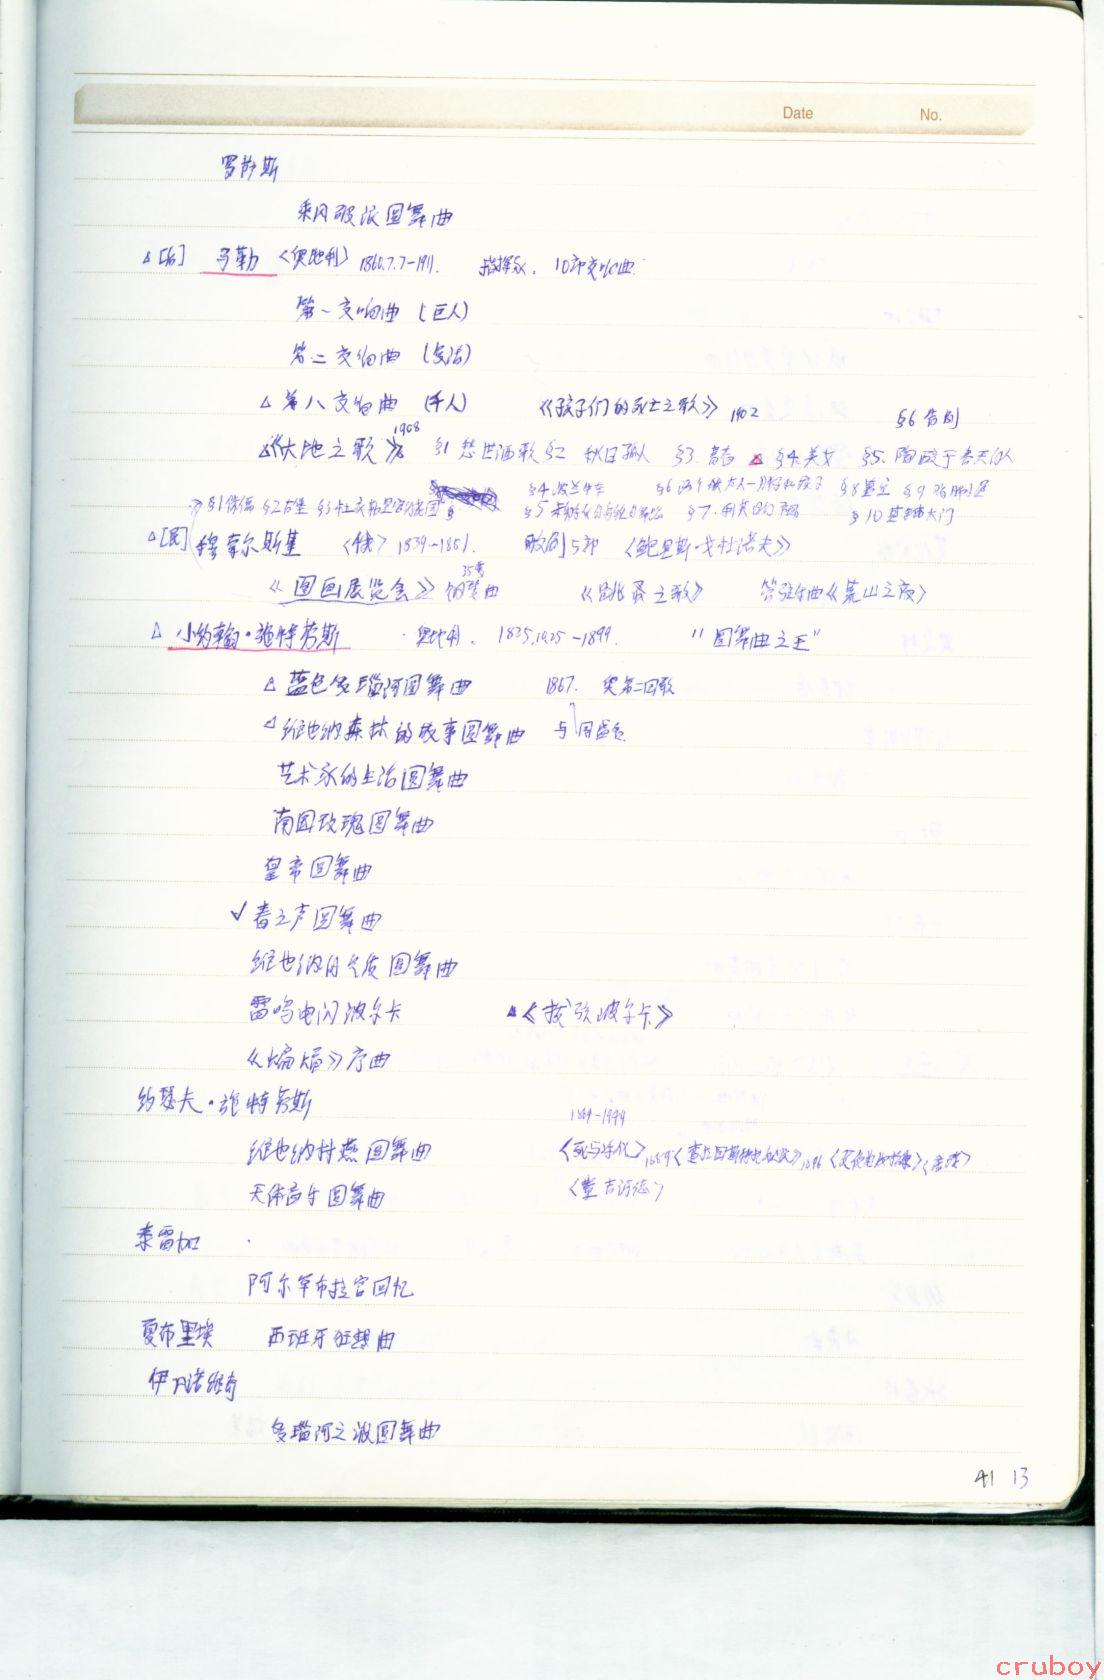 Date No.
罗萨斯
乘风破浪圆舞曲
△[后] 马勒 〈奥地利〉 1860.7.7-1911. 指挥家. 10部交响曲.
第一交响曲 (巨人)
第二交响曲 (复活)
△ 第八交响曲 (千人) 《孩子们的死亡之歌》 1902 §6 告别
△《大地之歌》 1908 §1 愁世酒歌 §2 秋日孤人 §3. 青春 △ §4. 美女 §5. 春天
§1侏儒 §2古堡 §4波兰牛车 §8墓穴 §10基辅大门
△[民] 穆索尔斯基 〈俄〉 1839-1881. 歌剧5部 《鲍里斯·戈杜诺夫》
《图画展览会》 钢琴曲 《跳蚤之歌》 管弦乐曲《荒山之夜》
△ 小约翰·施特劳斯 · 奥地利. 1825.10.25-1899. "圆舞曲之王"
△ 蓝色多瑙河圆舞曲 1867. 奥第二国歌
△ 维也纳森林的故事圆舞曲 与 同
艺术家的生活圆舞曲
南国玫瑰圆舞曲
皇帝圆舞曲
√ 春之声圆舞曲
维也纳气质圆舞曲
雷鸣电闪波尔卡 ▲《拨弦波尔卡》
《蝙蝠》序曲
约瑟夫·施特劳斯
1864-1949
维也纳村燕圆舞曲 〈死与净化〉
天体音乐圆舞曲 〈堂吉诃德〉
泰雷加
阿尔罕布拉宫回忆
夏布里埃 西班牙狂想曲
伊凡诺维奇
多瑙河之波圆舞曲
41 13
cruboy